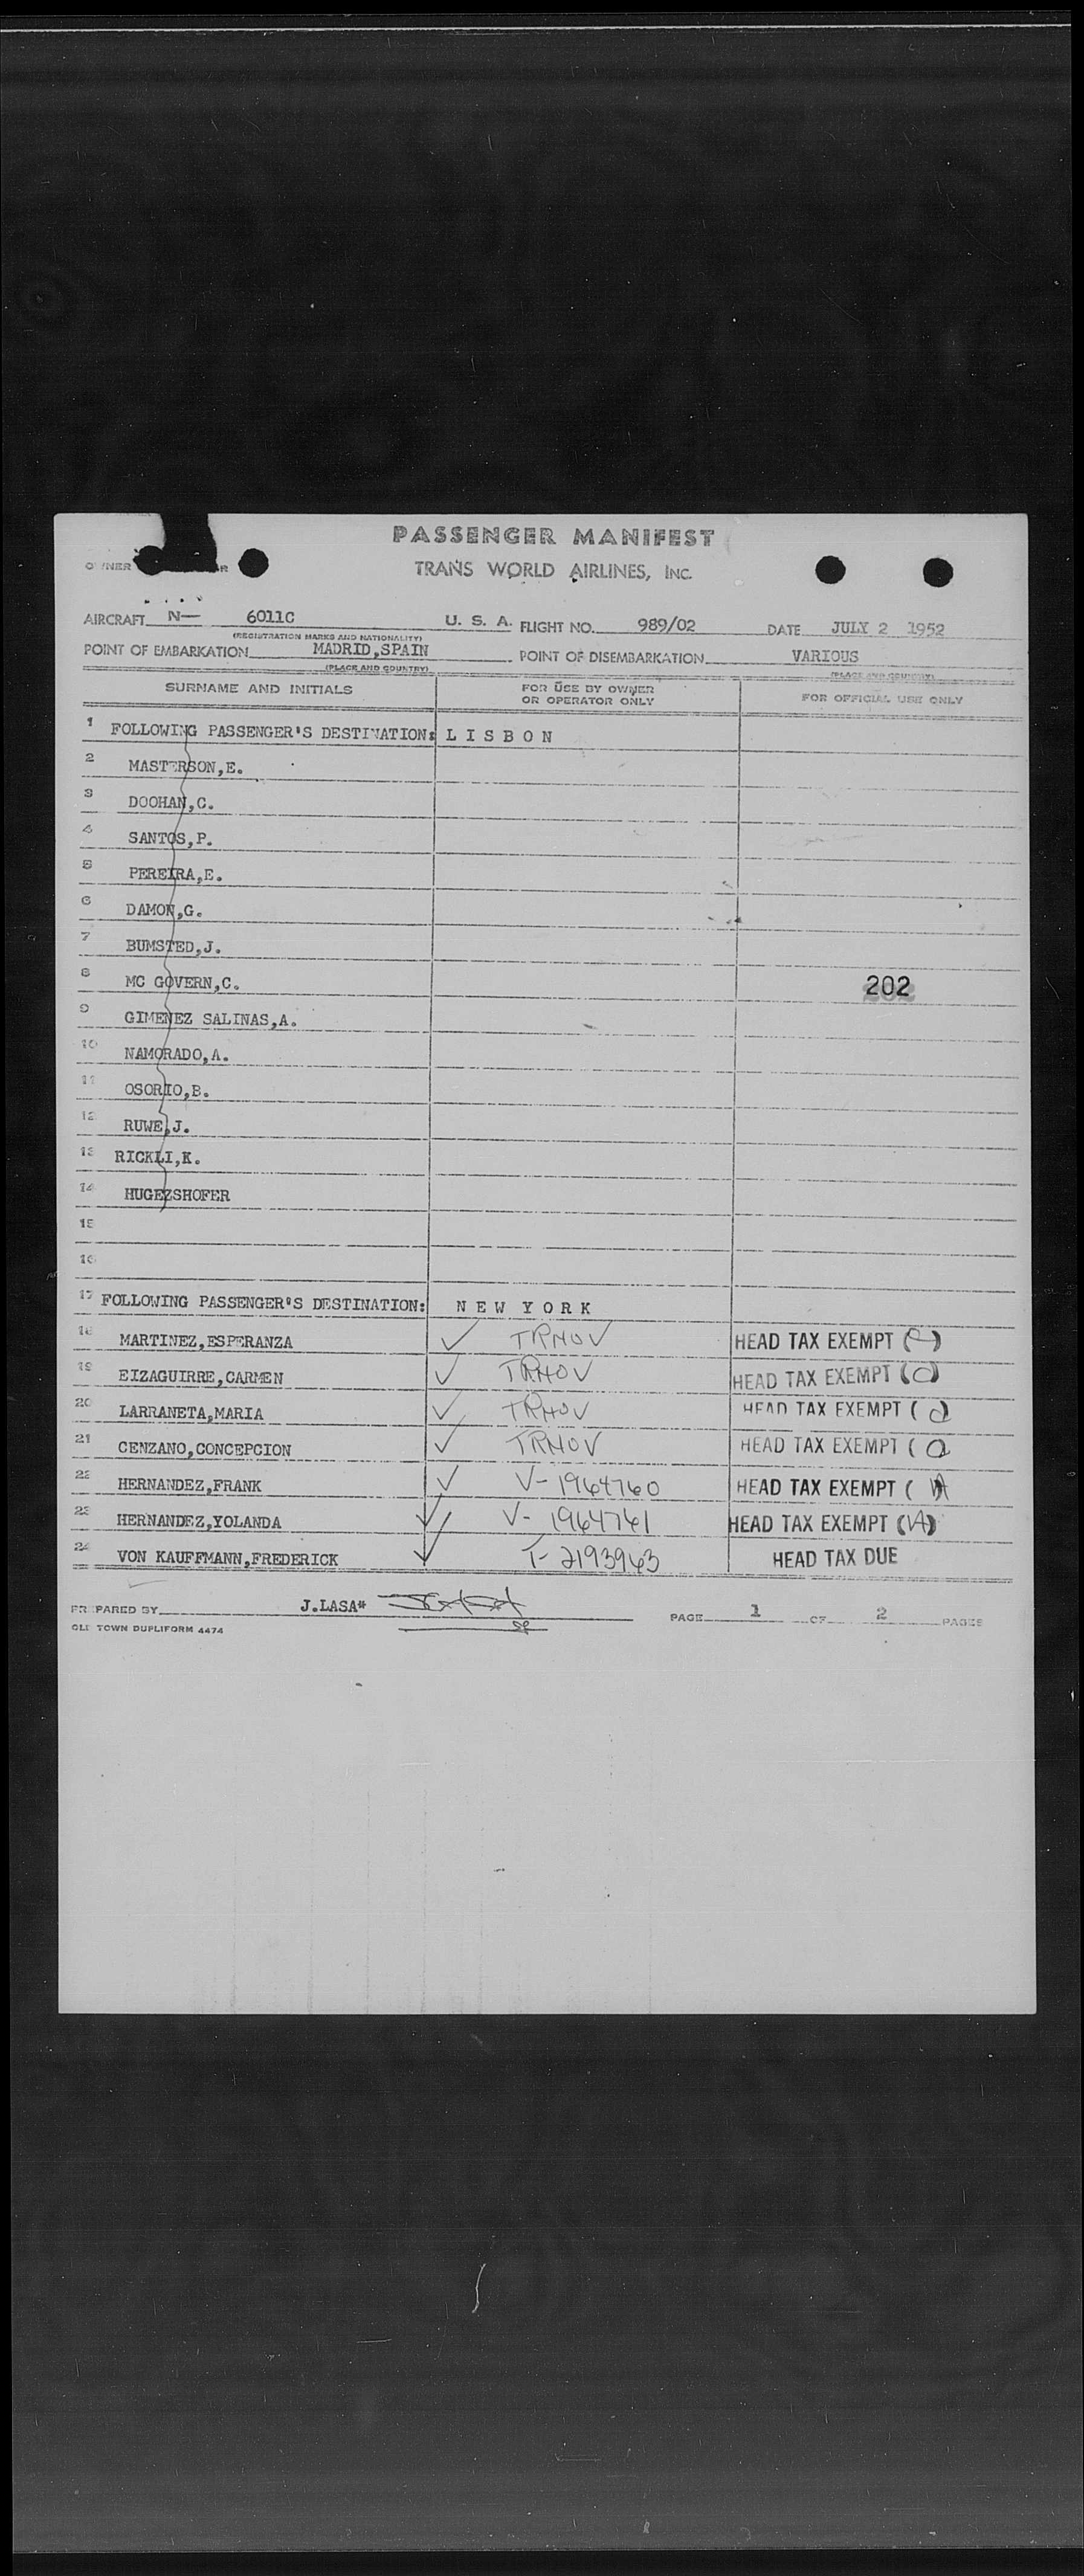 PASSENGER MANIFEST
OWNER
TRANS WORLD AIRLINES, INC.
AIRCRAFT N— 6011C U. S. A. FLIGHT NO. 989/02 DATE JULY 2 1952
(REGISTRATION MARKS AND NATIONALITY)
POINT OF EMBARKATION MADRID,SPAIN POINT OF DISEMBARKATION VARIOUS
(PLACE AND COUNTRY) (PLACE AND COUNTRY)
SURNAME AND INITIALS FOR USE BY OWNER OR OPERATOR ONLY FOR OFFICIAL USE ONLY
1 FOLLOWING PASSENGER'S DESTINATION: L I S B O N
2 MASTERSON,E.
3 DOOHAN,C.
4 SANTOS,P.
5 PEREIRA,E.
6 DAMON,G.
7 BUMSTED,J.
8 MC GOVERN,C. 202
9 GIMENEZ SALINAS,A.
10 NAMORADO,A.
11 OSORIO,B.
12 RUWE,J.
13 RICKLI,K.
14 HUGEZSHOFER
15
16
17 FOLLOWING PASSENGER'S DESTINATION: N E W Y O R K
18 MARTINEZ,ESPERANZA ✓ TRNOV HEAD TAX EXEMPT
19 EIZAGUIRRE,CARMEN ✓ TRNOV HEAD TAX EXEMPT
20 LARRANETA,MARIA ✓ TRNOV HEAD TAX EXEMPT
21 CENZANO,CONCEPCION ✓ TRNOV HEAD TAX EXEMPT
22 HERNANDEZ,FRANK ✓ V-1964760 HEAD TAX EXEMPT
23 HERNANDEZ,YOLANDA ✓ V- 1964761 HEAD TAX EXEMPT
24 VON KAUFFMANN,FREDERICK ✓ T-2193963 HEAD TAX DUE
PREPARED BY J.LASA# PAGE 1 OF 2 PAGES
OLD TOWN DUPLIFORM 4474